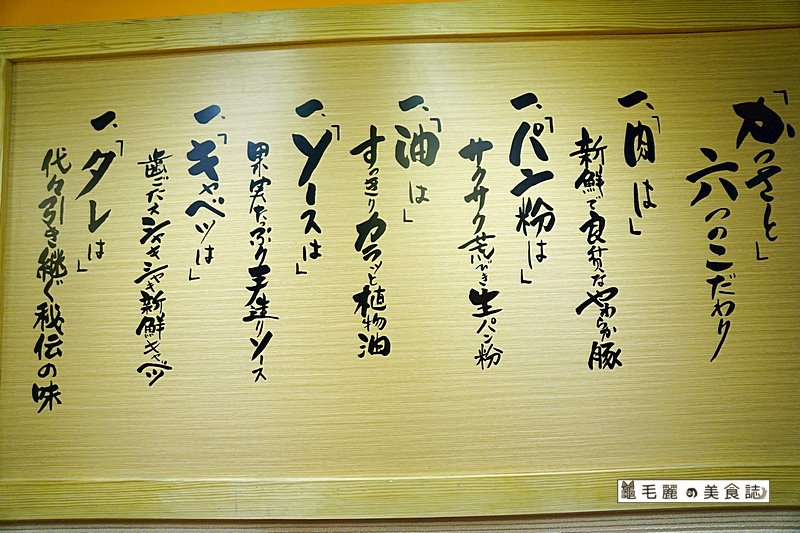 「かつさと」
六つのこだわり
一、「肉は」
新鮮で良質なやわらか豚
一、「パン粉は」
サクサク荒びき生パン粉
一、「油は」
すっきりカラッと植物油
一、「ソースは」
果実たっぷり手造りソース
一、「キャベツは」
歯ごたえシャキシャキ新鮮キャベツ
一、「タレは」
代々引き継ぐ秘伝の味
毛麗の美食誌